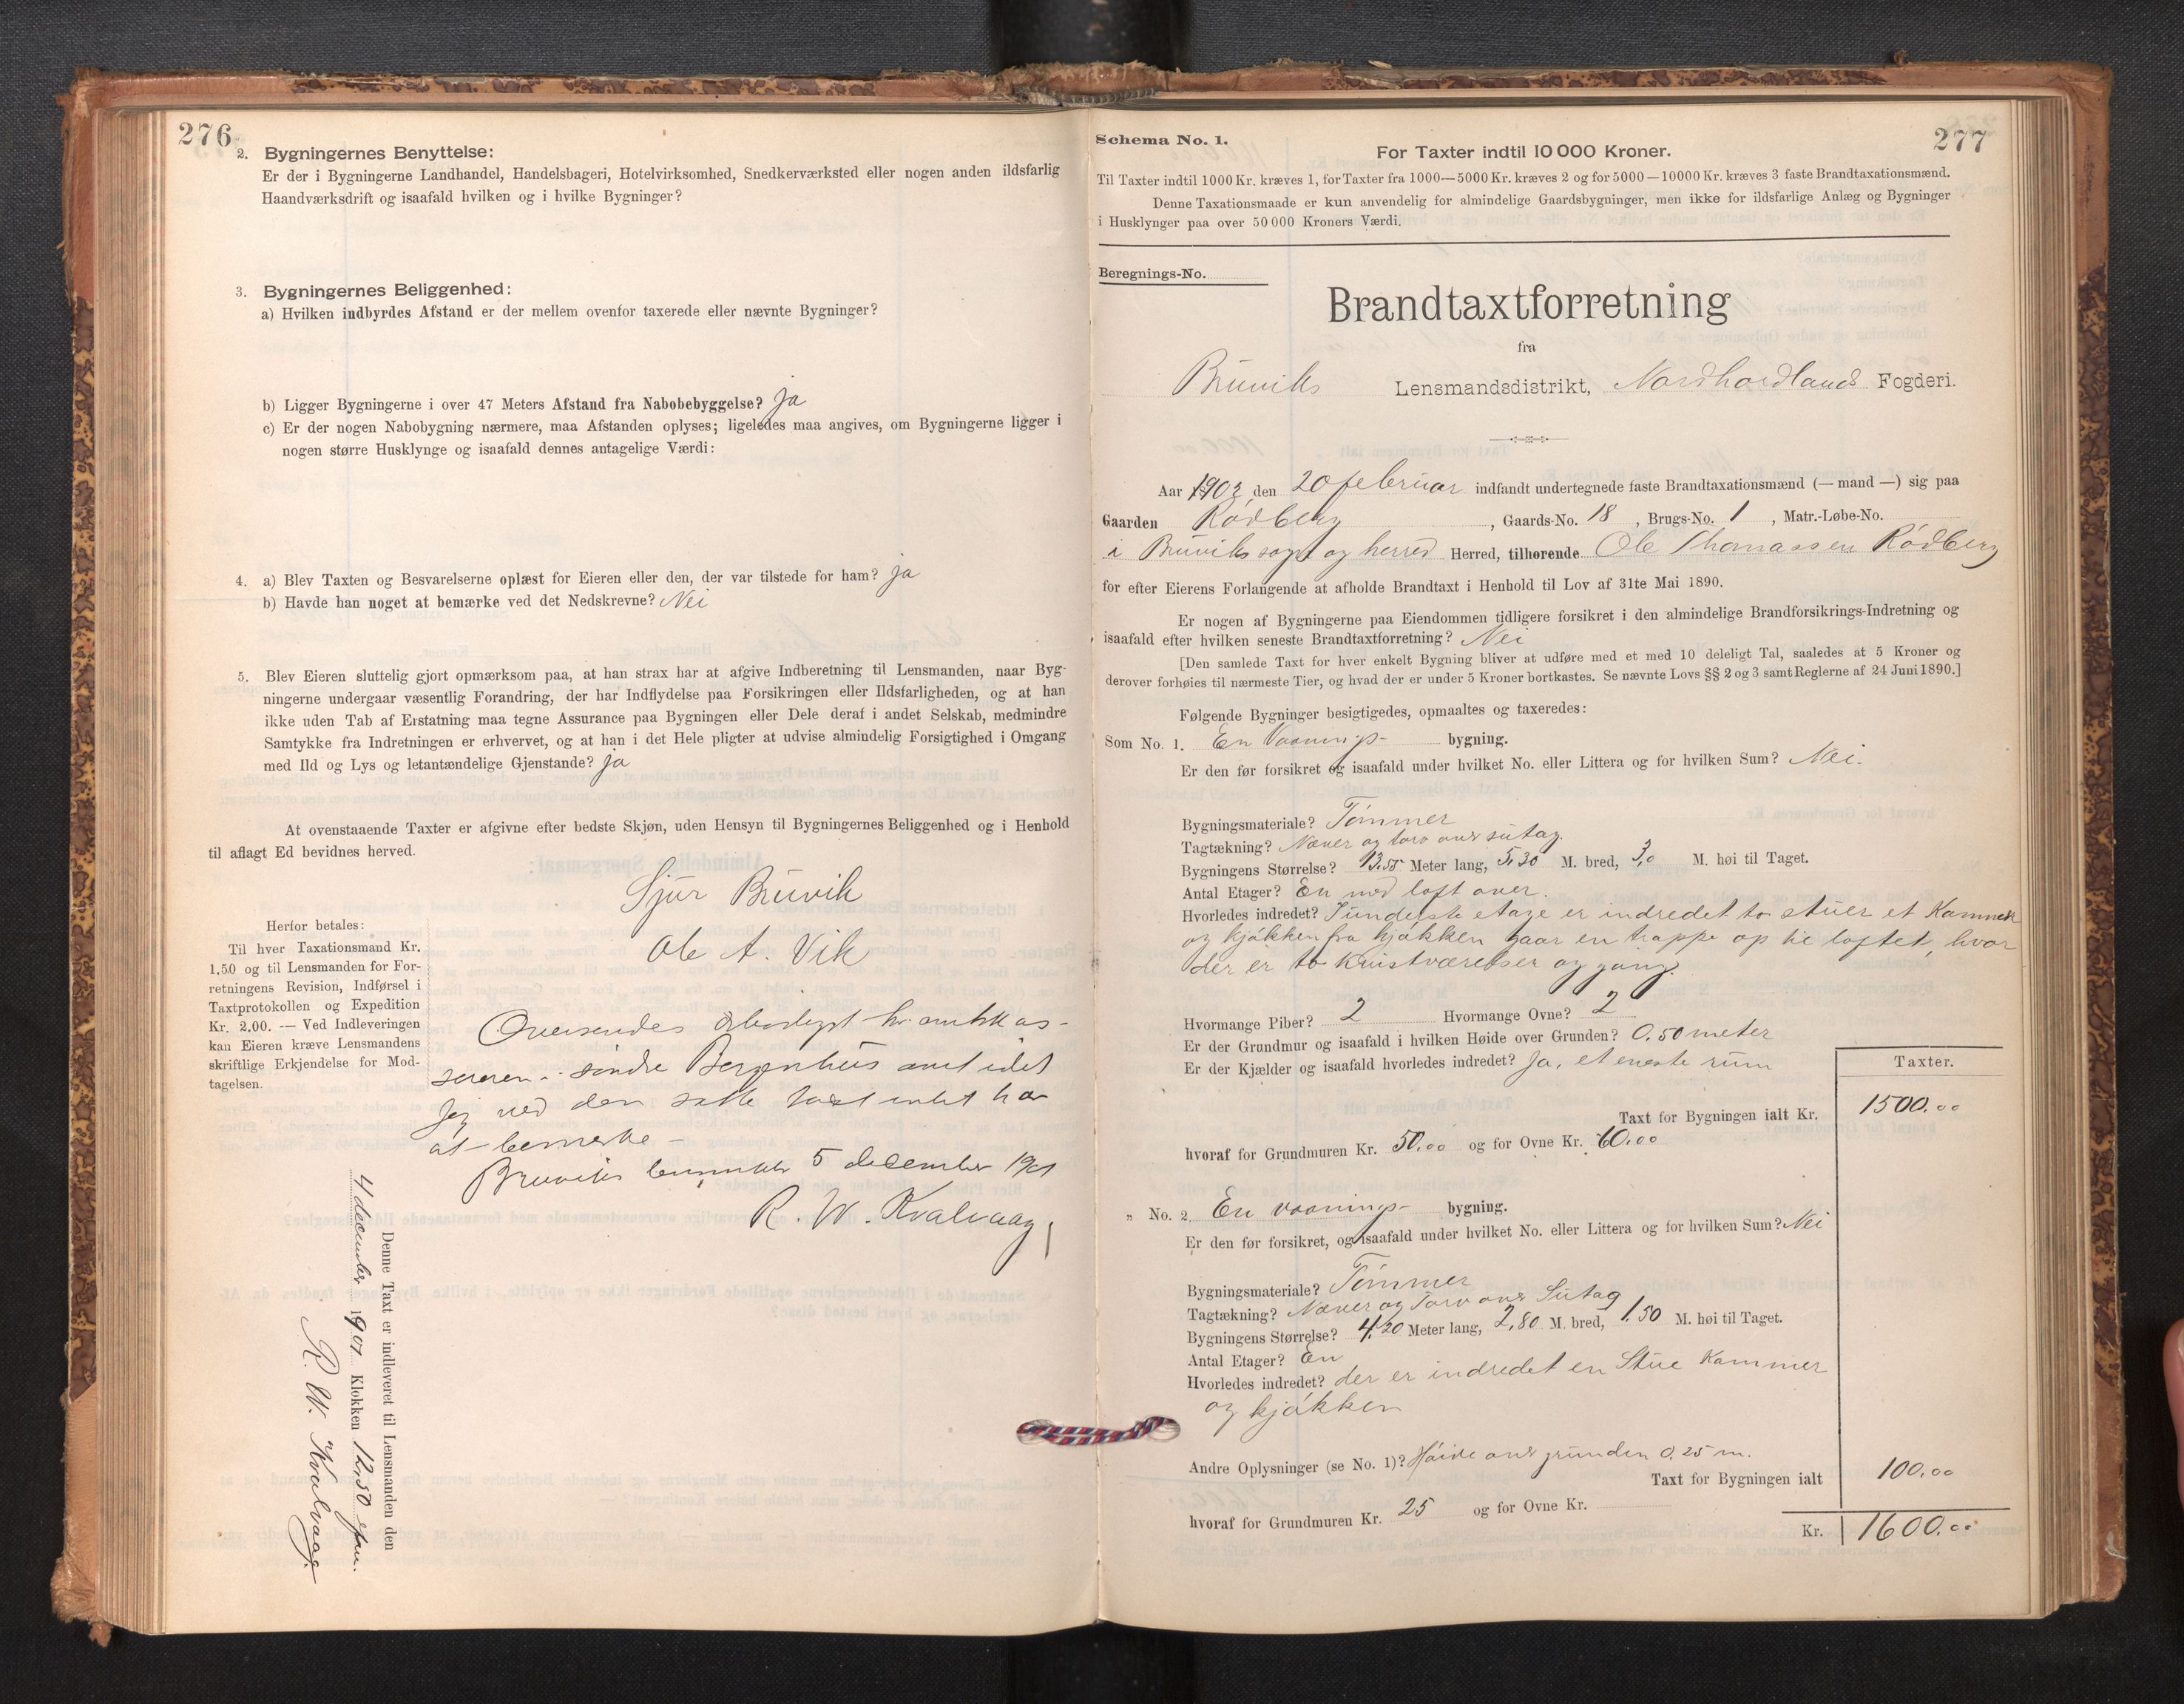 276
2. Bygningernes Benyttelse:
Er der i Bygningerne Landhandel, Handelsbageri, Hotelvirksomhed, Snedkerværksted eller nogen anden ildsfarlig
Haandværksdrift og isaafald hvilken og i hvilke Bygninger?
3. Bygningernes Beliggenhed:
a) Hvilken indbyrdes Afstand er der mellem ovenfor taxerede eller nævnte Bygninger?
b) Ligger Bygningerne i over 47 Meters Afstand fra Nabobebyggelse? ja
c) Er der nogen Nabobygning nærmere, maa Afstanden oplyses; ligeledes maa angives, om Bygningerne ligger i
nogen større Husklynge og isaafald dennes antagelige Værdi:
4. a) Blev Taxten og Besvarelserne oplæst for Eieren eller den, der var tilstede for ham? ja
b) Havde han noget at bemærke ved det Nedskrevne? Nei
5. Blev Eieren sluttelig gjort opmærksom paa, at han strax har at afgive Indberetning til Lensmanden, naar Byg-
ningerne undergaar væsentlig Forandring, der har Indflydelse paa Forsikringen eller Ildsfarligheden, og at han
ikke uden Tab af Erstatning maa tegne Assurance paa Bygningen eller Dele deraf i andet Selskab, medmindre
Samtykke fra Indretningen er erhvervet, og at han i det Hele pligter at udvise almindelig Forsigtighed i Omgang
med Ild og Lys og letantændelige Gjenstande? ja
At ovenstaaende Taxter er afgivne efter bedste Skjøn, uden Hensyn til Bygningernes Beliggenhed og i Henhold
til aflagt Ed bevidnes herved.
Sjur Bruvik
Ole A. Vik
Herfor betales:
Til hver Taxationsmand Kr.
1.50 og til Lensmanden for For-
retningens Revision, Indførsel i
Taxtprotokollen og Expedition
Kr. 2.00. — Ved Indleveringen
kan Eieren kræve Lensmandens
skriftlige Erkjendelse for Mod-
tagelsen.
Oversendes ærbødigst hr. amtskas-
sereren i søndre Bergenhus amt idet
jeg ved den satte taxt intet har
at bemerke -
Bruviks 5 december 1901
R. W. Kvalvaag
Denne Taxt er indleveret til Lensmanden den
4 december 1901 Klokken 12.50
R. W. Kvalvaag.
277
Schema No. 1.
For Taxter indtil 10 000 Kroner.
Til Taxter indtil 1000 Kr. kræves 1, for Taxter fra 1000—5000 Kr. kræves 2 og for 5000—10000 Kr. kræves 3 faste Brandtaxationsmænd.
Denne Taxationsmaade er kun anvendelig for almindelige Gaardsbygninger, men ikke for ildsfarlige Anlæg og Bygninger
i Husklynger paa over 50 000 Kroners Værdi.
Beregnings-No.
Brandtaxtforretning
fra
Bruviks Lensmandsdistrikt, Nordhordlands Fogderi.
Aar 1902, den 20 februar indfandt undertegnede faste Brandtaxationsmænd (—mand—) sig paa
Gaarden Rödberg, Gaards-No. 18, Brugs-No. 1, Matr.-Løbe-No.
i Bruviks sogn og herred Herred, tilhørende Ole Thomassen Rödberg
for efter Eierens Forlangende at afholde Brandtaxt i Henhold til Lov af 31te Mai 1890.
Er nogen af Bygningerne paa Eiendommen tidligere forsikret i den almindelige Brandforsikrings-Indretning og
isaafald efter hvilken seneste Brandtaxtforretning? Nei
[Den samlede Taxt for hver enkelt Bygning bliver at udføre med et med 10 deleligt Tal, saaledes at 5 Kroner og
derover forhøies til nærmeste Tier, og hvad der er under 5 Kroner bortkastes. Se nævnte Lovs §§ 2 og 3 samt Reglerne af 24 Juni 1890.]
Følgende Bygninger besigtigedes, opmaaltes og taxeredes:
Som No. 1. En Vaanings- bygning.
Er den før forsikret og isaafald under hvilket No. eller Littera og for hvilken Sum? Nei.
Bygningsmateriale? Tömmer
Tagtækning? Næver og torv over sutag.
Bygningens Størrelse? 13.55 Meter lang, 5.30 M. bred, 3,0 M. høi til Taget.
Antal Etager? En med loft over.
Hvorledes indredet? I underste etage er indredet to stuer et Kammer
og kjökken fra kjökken gaar en trappe op til loftet, hvor
der er to Kvistværelser og gang.
Hvormange Piber? 2 Hvormange Ovne? 2
Er der Grundmur og isaafald i hvilken Høide over Grunden? 0.50 meter
Er der Kjælder og isaafald hvorledes indredet? Ja, et eneste rum
Taxter.
Taxt for Bygningen ialt Kr. 1500.00
hvoraf for Grundmuren Kr. 50.00 og for Ovne Kr. 60.00
" No. 2 En vaanings- bygning.
Er den før forsikret, og isaafald under hvilket No. eller Littera og for hvilken Sum? Nei
Bygningsmateriale? Tömmer
Tagtækning? Næver og Torv over Sutag
Bygningens Størrelse? 4.20 Meter lang, 2,80 M. bred, 1.50 M. høi til Taget.
Antal Etager? En
Hvorledes indredet? der er indredet en Stue Kammer
og kjökken
Andre Oplysninger (se No. 1)? Höide over grunden 0,25 m.
Taxt for Bygningen ialt 100.00
hvoraf for Grundmuren Kr. 25 og for Ovne Kr.
Kr. 1600.00